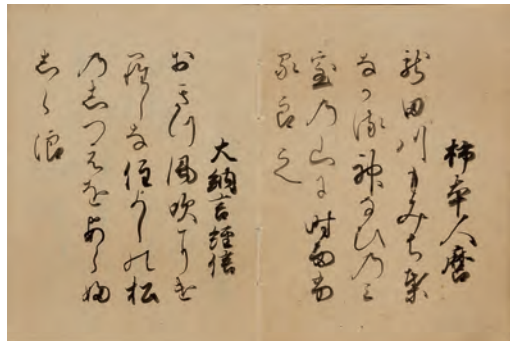 柿本人麿
龍田川もみち葉
なか流神なひ乃三
室乃山に時雨布
累良之
大納言経信
おきつ風吹にけ
羅しな住よしの松
乃志つえをあらふ
志ら浪